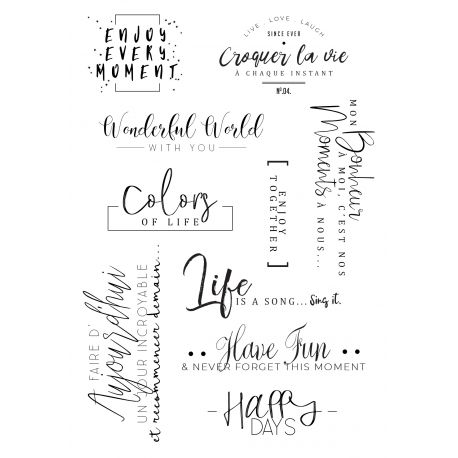 ENJOY
EVERY
MOMENT...
LIVE - LOVE - LAUGH
SINCE EVER
Croquer la vie
À CHAQUE INSTANT
Nº.04.
Wonderful World
WITH YOU
MON
Bonheur
À MOI, C'EST NOS
Moments
À NOUS...
[ ENJOY
TOGETHER ]
Colors
OF LIFE
Life
IS A SONG... Sing it.
FAIRE D'
Aujourd'hui
UN JOUR INCROYABLE
et recommencer demain...
Have Fun
& NEVER FORGET THIS MOMENT
Happy
DAYS